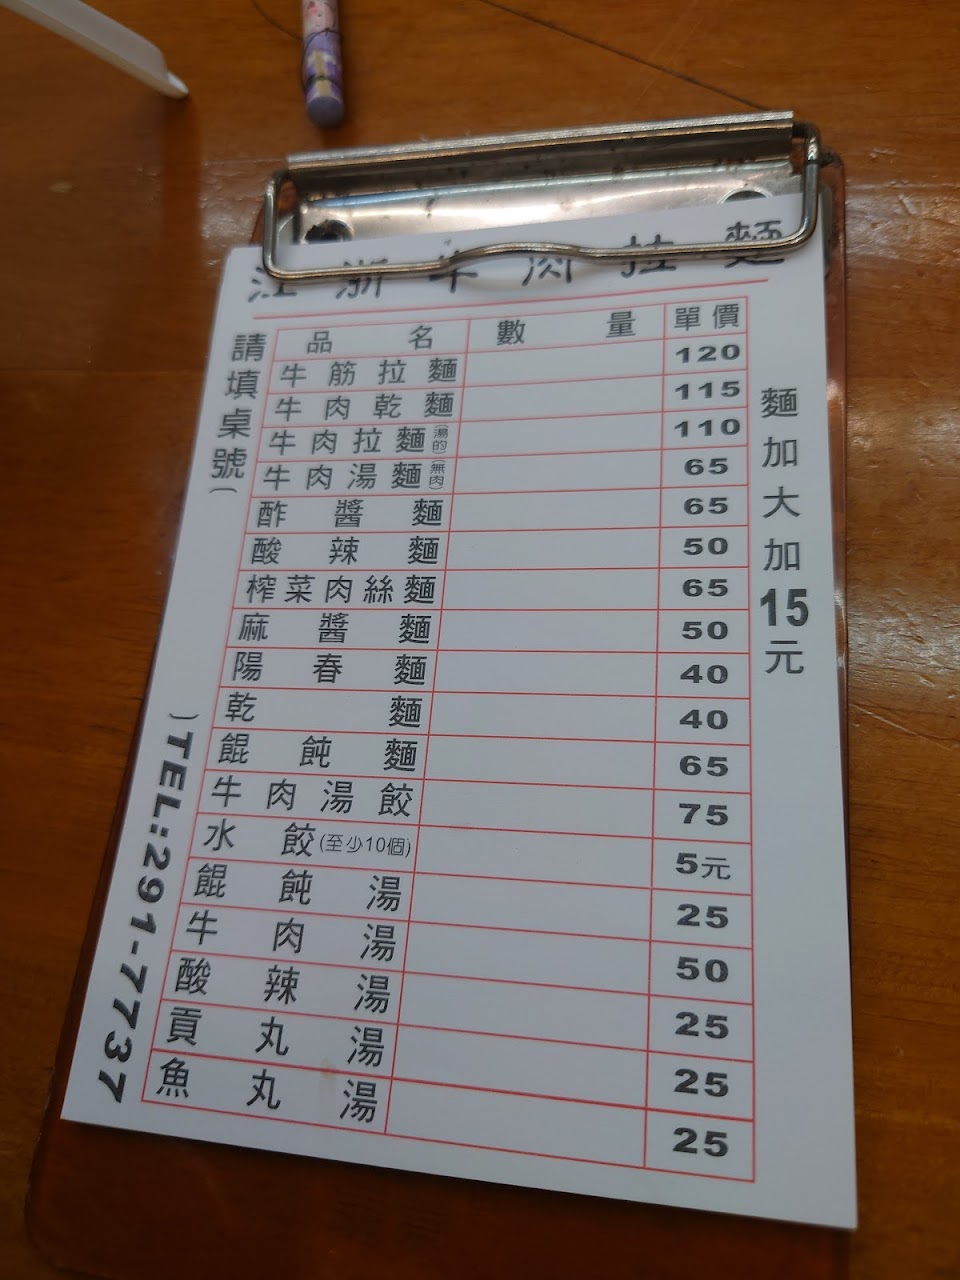 江浙牛肉拉麵
品名 數量 單價
牛筋拉麵 120
牛肉乾麵 115
牛肉拉麵(湯的) 110
牛肉湯麵(無肉) 65
酢醬麵 65
酸辣麵 50
榨菜肉絲麵 65
麻醬麵 50
陽春麵 40
乾麵 40
餛飩麵 65
牛肉湯餃 75
水餃(至少10個) 5元
餛飩湯 25
牛肉湯 50
酸辣湯 25
貢丸湯 25
魚丸湯 25
請填桌號( )TEL:291-7737
麵加大加15元